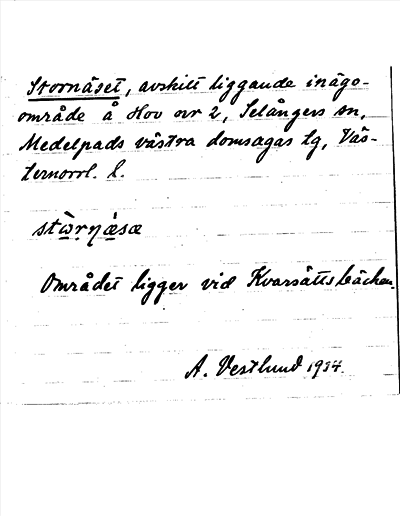 Stornäset, avskilt liggande inägo-
område å Hov nr 2, Selångers sn,
Medelpads västra domsagas tg, Väs-
ternorrl. l.
stὼrṇä́sæ
Området ligger vid Kvarsättsbäcken.
A. Vestlund 1934.